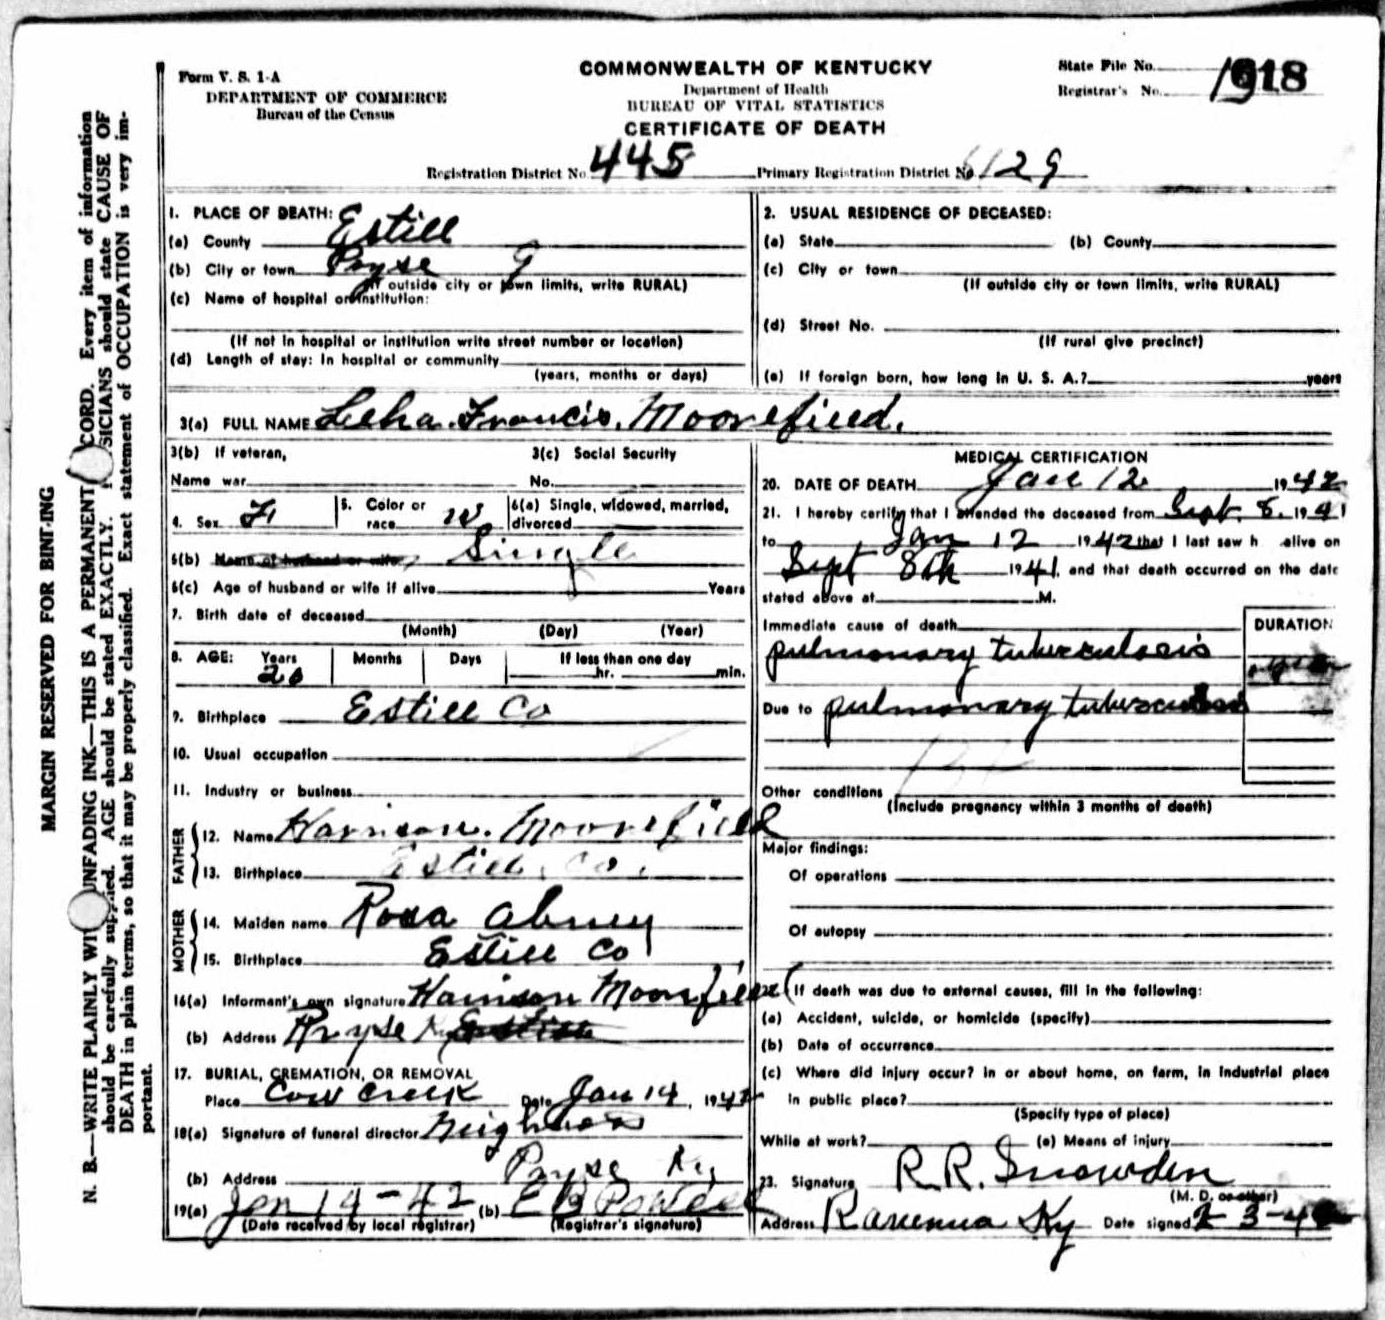 Form V. S. 1-A
DEPARTMENT OF COMMERCE
Bureau of the Census
COMMONWEALTH OF KENTUCKY
Department of Health
BUREAU OF VITAL STATISTICS
CERTIFICATE OF DEATH
State File No.
Registrar's No. 1918
Registration District No. 445 Primary Registration District No. 6129
MARGIN RESERVED FOR BINDING
N. B.—WRITE PLAINLY WITH UNFADING INK—THIS IS A PERMANENT RECORD. Every item of information
should be carefully supplied. AGE should be stated EXACTLY. PHYSICIANS should state CAUSE OF
DEATH in plain terms, so that it may be properly classified. Exact statement of OCCUPATION is very im-
portant.
1. PLACE OF DEATH:
(a) County Estill
(b) City or town Pryse
(If outside city or town limits, write RURAL)
(c) Name of hospital or institution:
(If not in hospital or institution write street number or location)
(d) Length of stay: In hospital or community
(years, months or days)
2. USUAL RESIDENCE OF DECEASED:
(a) State (b) County
(c) City or town
(If outside city or town limits, write RURAL)
(d) Street No.
(If rural give precinct)
(e) If foreign born, how long in U. S. A.? years
3(a) FULL NAME Leha Francis. Moorefield.
3(b) If veteran, 3(c) Social Security
Name war No.
4. Sex F 5. Color or race W 6(a) Single, widowed, married, divorced
6(b) Name of husband or wife Single
6(c) Age of husband or wife if alive Years
7. Birth date of deceased
(Month) (Day) (Year)
8. AGE: Years Months Days If less than one day
20 hr. min.
9. Birthplace Estill Co
10. Usual occupation
11. Industry or business
FATHER
12. Name Harrison. Moorefield
13. Birthplace Estill. Co.
MOTHER
14. Maiden name Rosa Abney
15. Birthplace Estill Co
16(a) Informant's own signature Harrison Moorefield
(b) Address Pryse Ky
17. BURIAL, CREMATION, OR REMOVAL
Place Cow Creek Date Jan 14, 1942
18(a) Signature of funeral director Neighbors
(b) Address Pryse Ky
19(a) Jan 14-42 (b) E B Powell
(Date received by local registrar) (Registrar's signature)
MEDICAL CERTIFICATION
20. DATE OF DEATH Jan 12 1942
21. I hereby certify that I attended the deceased from Sept. 8. 1941
to Jan 12 1942 that I last saw h alive on
Sept 8th 1941, and that death occurred on the date
stated above at M.
Immediate cause of death DURATION
pulmonary tuberculosis
Due to pulmonary tuberculosis
Other conditions
(Include pregnancy within 3 months of death)
Major findings:
Of operations
Of autopsy
22. (If death was due to external causes, fill in the following:
(a) Accident, suicide, or homicide (specify)
(b) Date of occurrence
(c) Where did injury occur? in or about home, on farm, in industrial place
in public place?
(Specify type of place)
While at work? (e) Means of injury
23. Signature R. R. Snowden
(M. D. or other)
Address Ravenna Ky Date signed 2-3-42